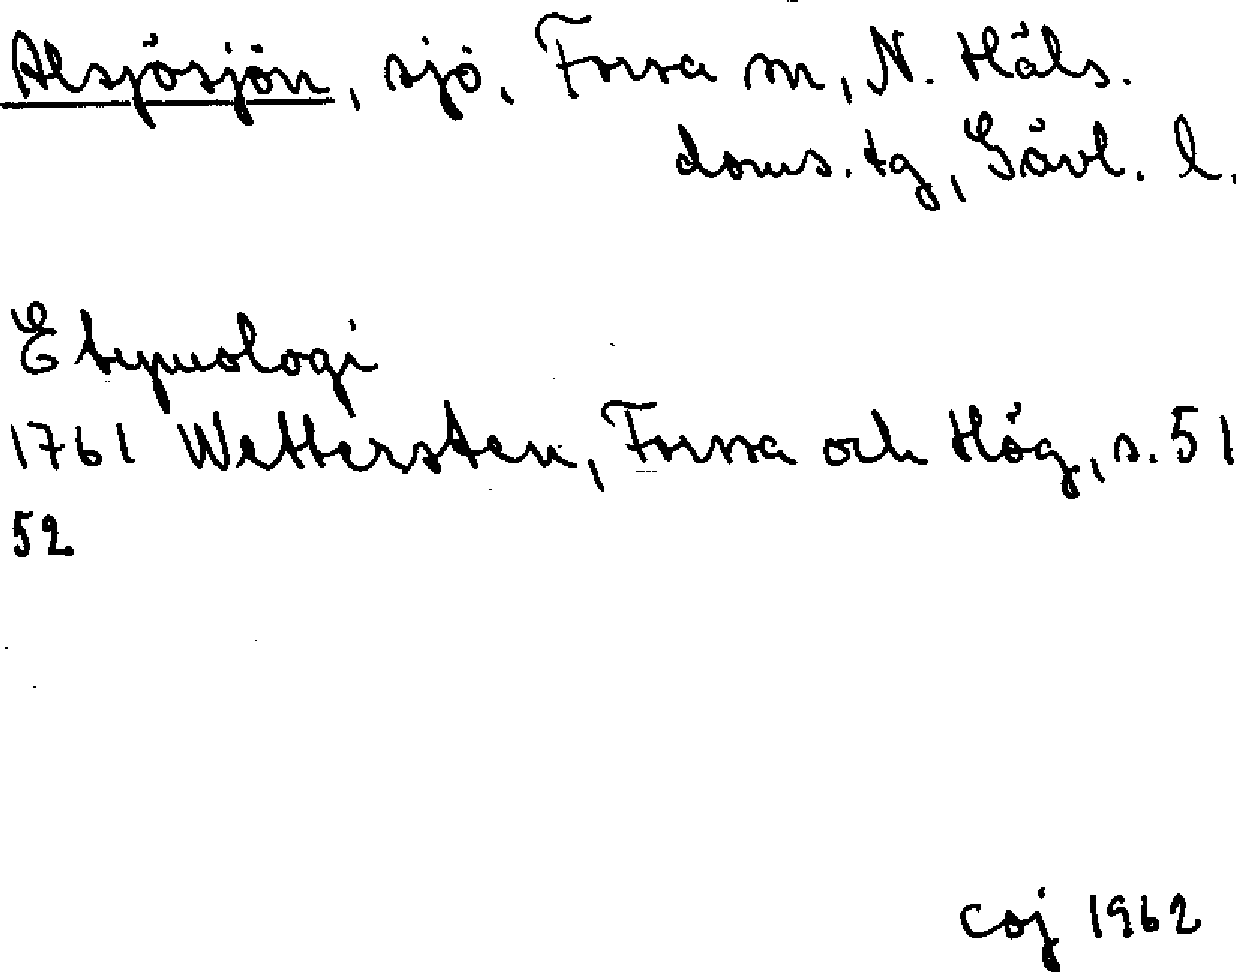 Alsjösjön, sjö, Forsa sn, N. Häls.
doms. tg, Gävl. l.
Etymologi
1761 Wettersten, Forssa och Hög, s. 51
52
coj 1962